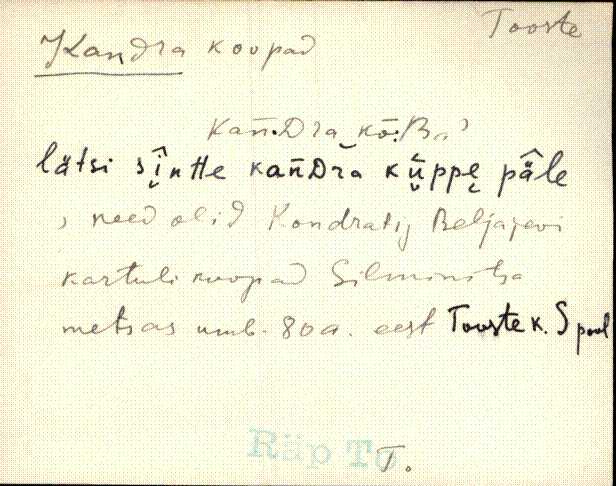 Tooste
Kandra koopad
kan̄.Dra kō.Ba'
lätsi sînt́te kan̄Dra küppe pâle
, need olid Kondratij Beljajevi
kartulikoopad Silminitsa
metsas umb. 80 a. eest Tooste k. S pool
Räp To
T.